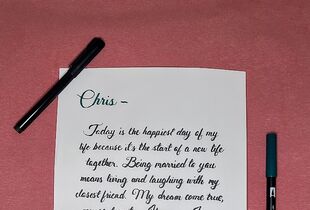 Chris ~
Today is the happiest day of my
life because it's the start of a new life
together. Being married to you
means living and laughing with my
closest friend. My dream come true,